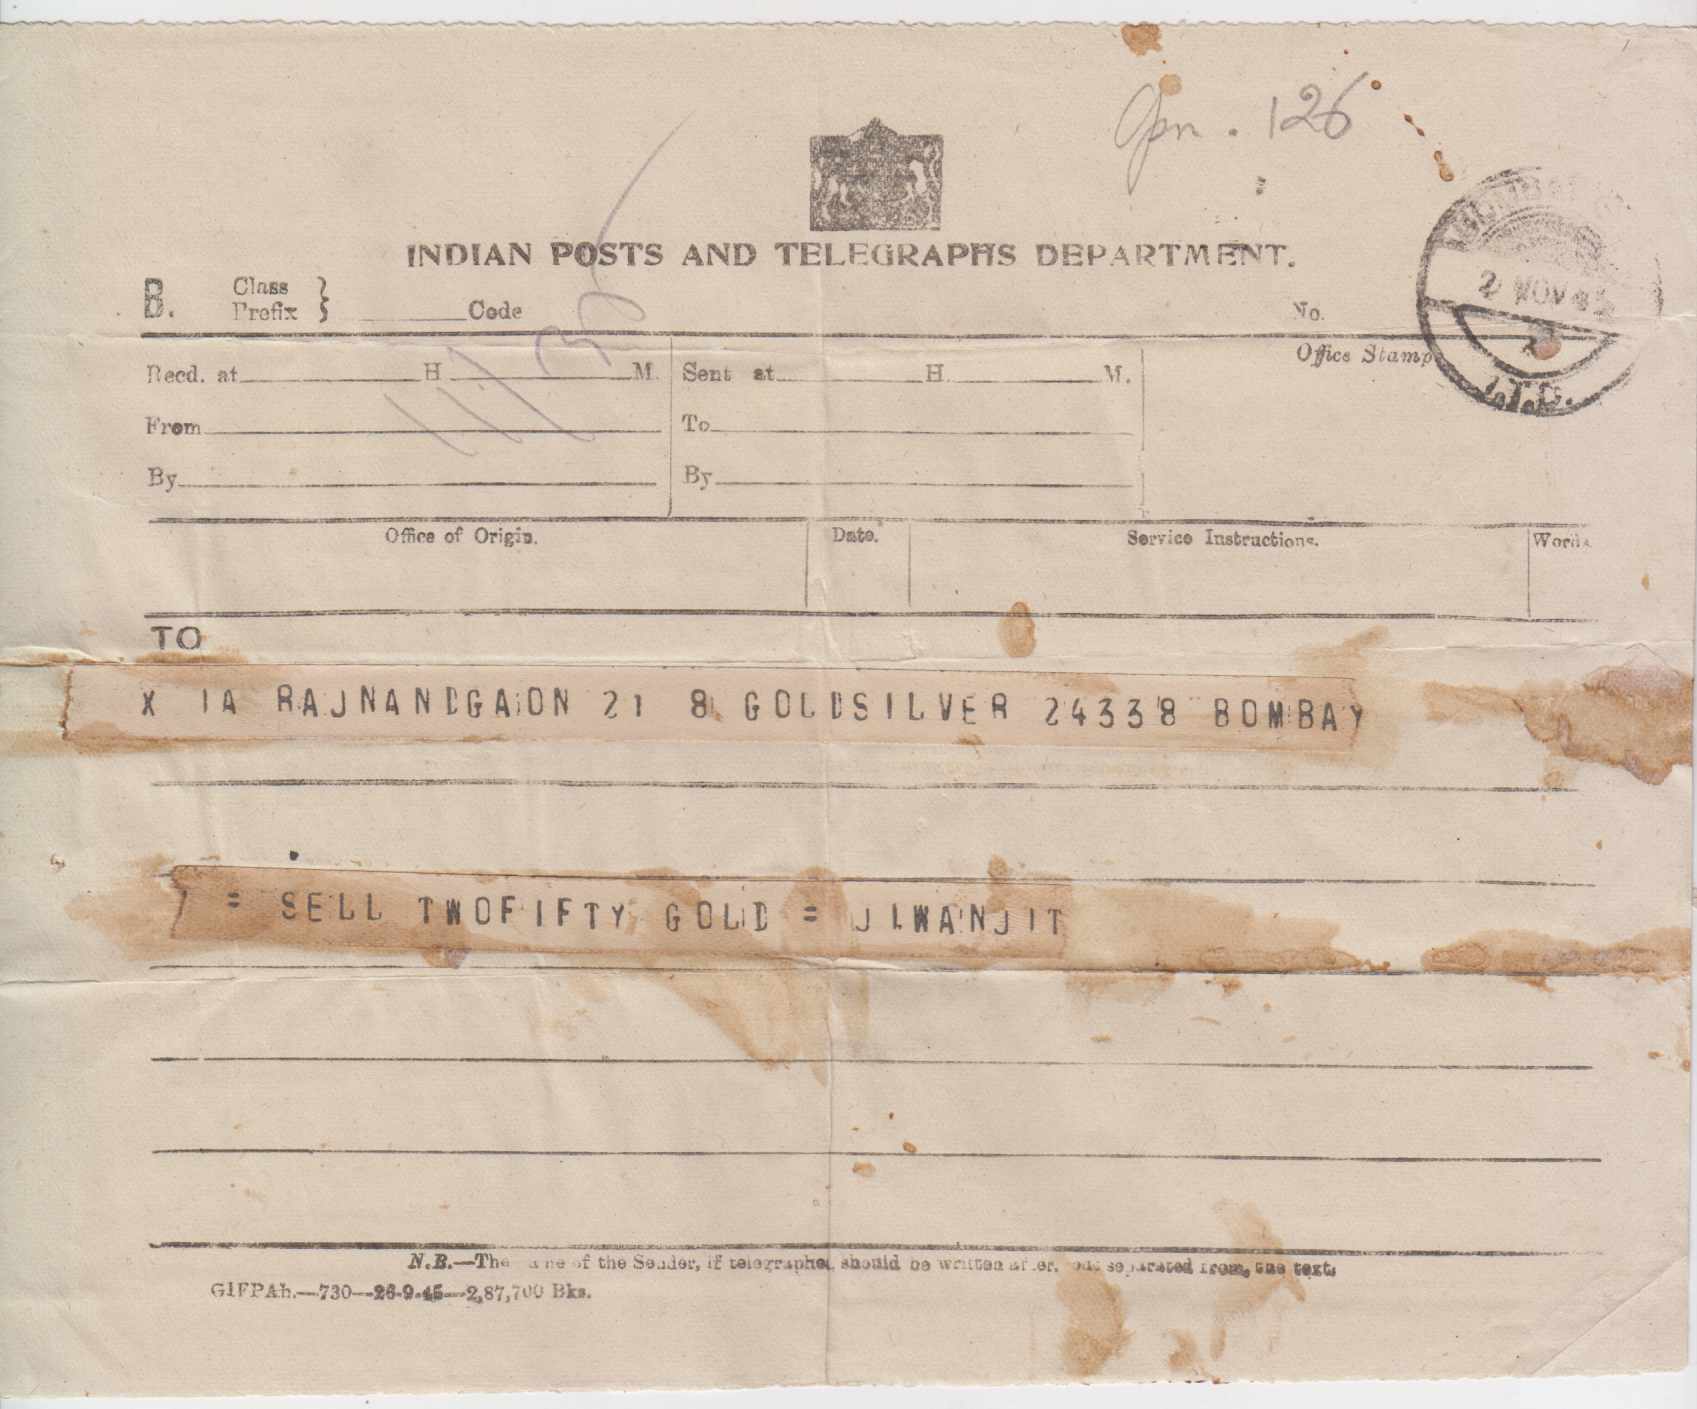 Opn. 126
INDIAN POSTS AND TELEGRAPHS DEPARTMENT.
B. Class Prefix } Code No.
2 NOV 45
Recd. at H M. Sent at H. M. Office Stamp
I.T.D.
From To
By By
Office of Origin. Date. Service Instructions. Words.
TO
X IA RAJNANDGAON 21 8 GOLDSILVER 24338 BOMBAY
= SELL TWOFIFTY GOLD = JIWANJIT
N.B.—The of the Sender, if telegraphed should be written after, separated from, the text.
GIFPAh.—730—26-9-45—2,87,700 Bks.